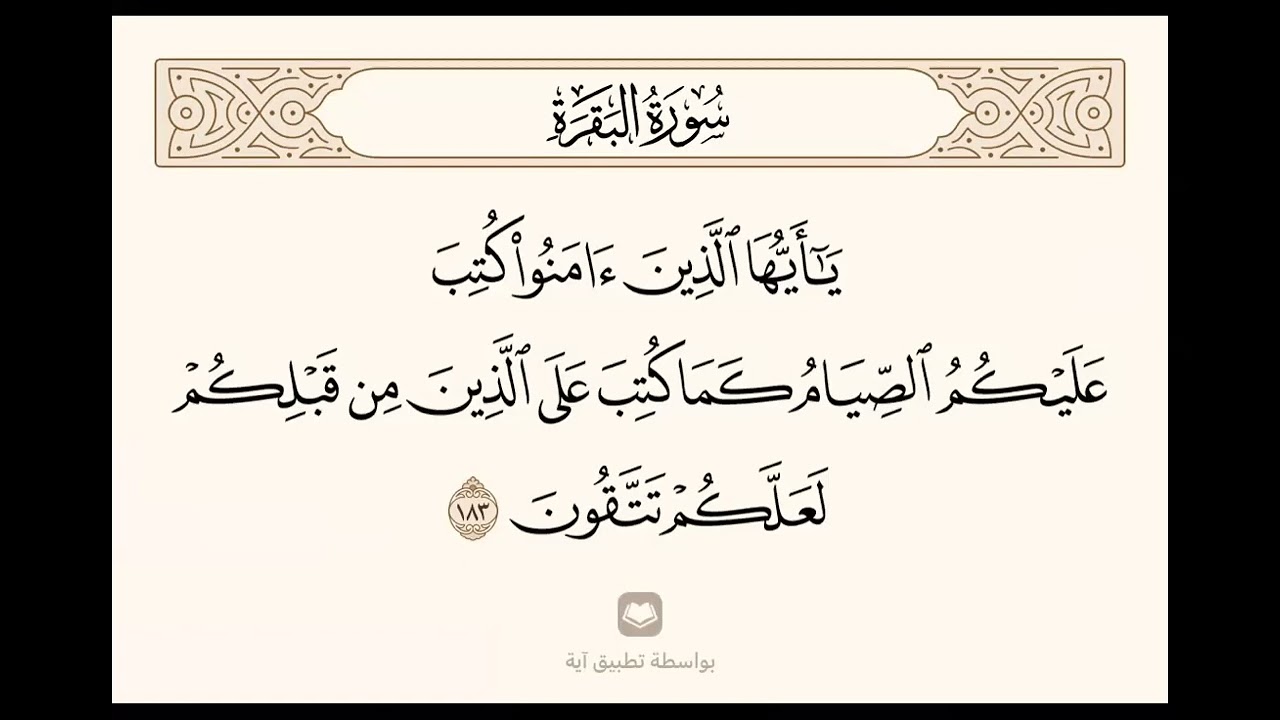 سُورَةُ الْبَقَرَةِ
يَـٰٓأَيُّهَا ٱلَّذِينَ ءَامَنُوا۟ كُتِبَ
عَلَيْكُمُ ٱلصِّيَامُ كَمَا كُتِبَ عَلَى ٱلَّذِينَ مِن قَبْلِكُمْ
لَعَلَّكُمْ تَتَّقُونَ ١٨٣
بواسطة تطبيق آية